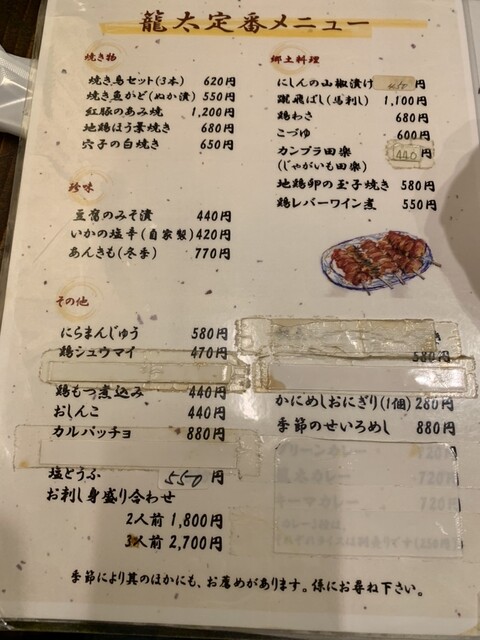 龍太定番メニュー
焼き物
焼き鳥セット(3本) 620円
焼き魚かど(ぬか漬) 550円
紅豚のあみ焼 1,200円
地鶏ほう葉焼き 680円
穴子の白焼き 650円
珍味
豆腐のみそ漬 440円
いかの塩辛(自家製) 420円
あんきも(冬季) 770円
その他
にらまんじゅう 580円
鶏シュウマイ 470円
鶏もつ煮込み 440円
おしんこ 440円
カルパッチョ 880円
塩とうふ 550円
お刺し身盛り合わせ
2人前 1,800円
3人前 2,700円
郷土料理
にしんの山椒漬け 円
蹴飛ばし(馬刺し) 1,100円
鶏わさ 680円
こづゆ 600円
カンプラ田楽 440円
(じゃがいも田楽)
地鶏卵の玉子焼き 580円
鶏レバーワイン煮 550円
580円
かにめしおにぎり(1個) 260円
季節のせいろめし 880円
グリーンカレー 720円
カレー 720円
キーマカレー 720円
季節により其のほかにも、お薦めがあります。係にお尋ね下さい。